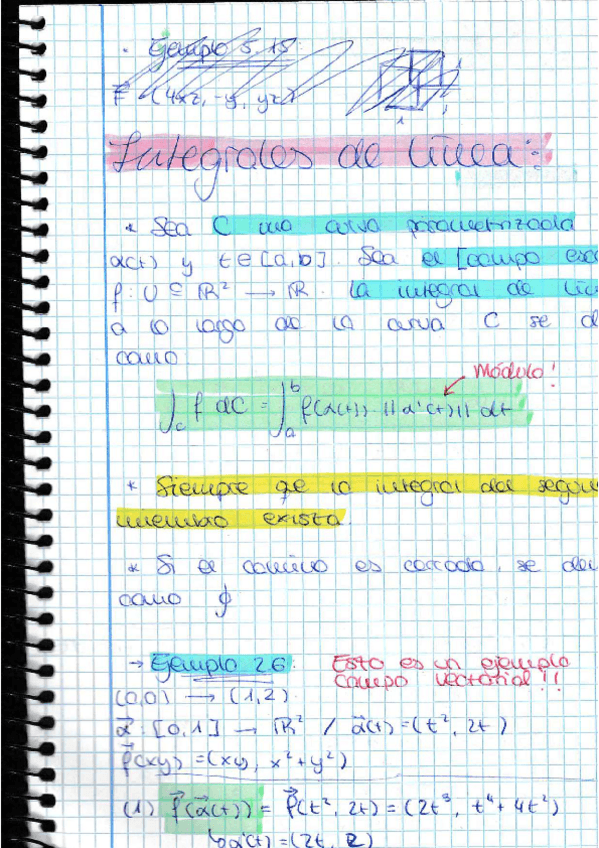 · Ejemplo 5.15:
F (4xz, -y, yz)
1
Integrales de línea:
* Sea C una curva parametrizada
α(t) y t∈[a,b]. Sea el [campo esc
f: U ⊆ ℝ² → ℝ. La integral de
a lo largo de la curva C se de
como
Módulo!
∫_c f dC = ∫_a^b f(α(t)) · ||α'(t)|| dt
* Siempre que la integral del segun
miembro exista.
* Si el camino es cerrado, se den
como ∮
→ Ejemplo 26: Esto es un ejemplo
campo vectorial!!
(0,0) → (1,2)
α⃗: [0,1] → ℝ² / α⃗(t) = (t², 2t)
f⃗(x,y) = (xy, x²+y²)
(1) f⃗(α⃗(t)) = f⃗(t², 2t) = (2t³, t⁴+4t²)
α'(t) = (2t, 2)